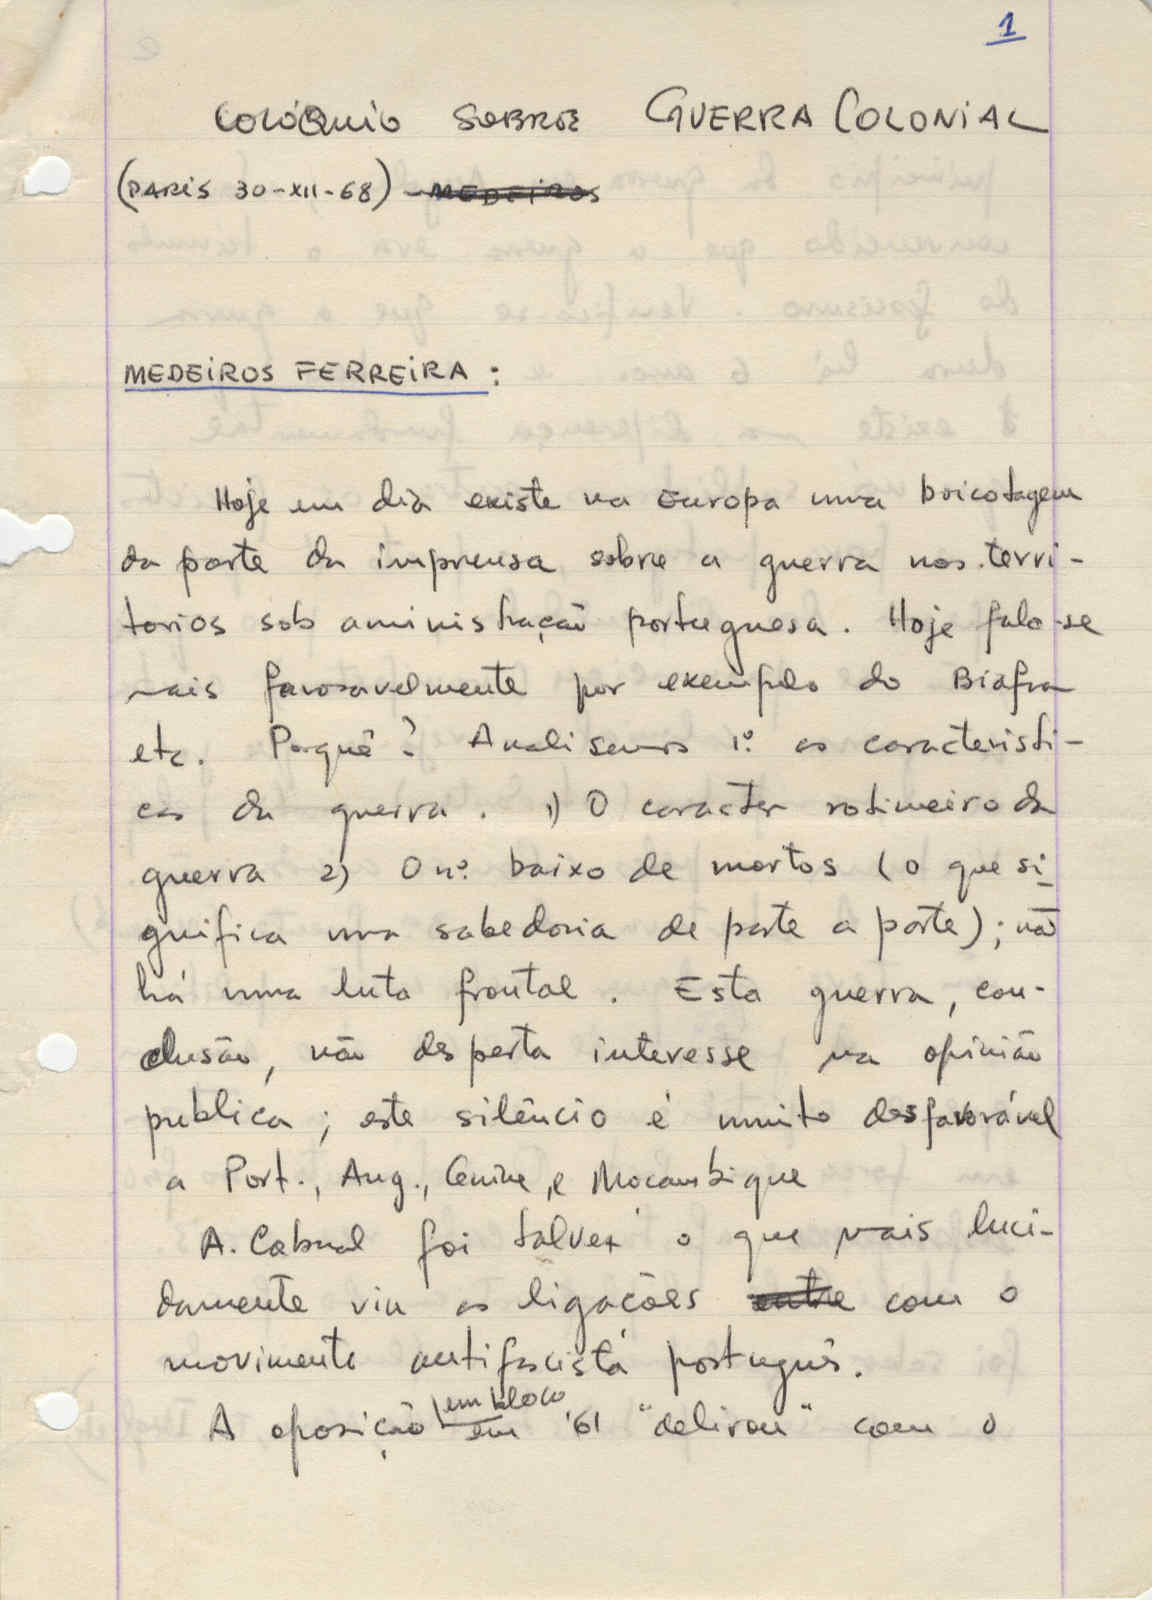 1
COLÓQUIO SOBRE GUERRA COLONIAL
(PARIS 30-XII-68) - MEDEIROS
MEDEIROS FERREIRA :
Hoje em dia existe na Europa uma boicotagem
da parte da imprensa sobre a guerra nos terri-
torios sob aministração portuguesa. Hoje fala-se
mais favoravelmente por exemplo do Biafra
etc. Porquê? Analisemos 1º as caracteristi-
cas da guerra. 1) O caracter rotineiro da
guerra 2) O nº baixo de mortos (o que si-
gnifica uma sabedoria de parte a parte); não
há uma luta frontal. Esta guerra, con-
clusão, não desperta interesse na opinião
publica; este silêncio é muito desfavorável
a Port., Ang., Guiné, e Moçambique
A. Cabral foi talvez o que mais luci-
damente viu as ligações entre com o
movimento antifascista português.
A oposição em bloco em '61 "delirou" com o